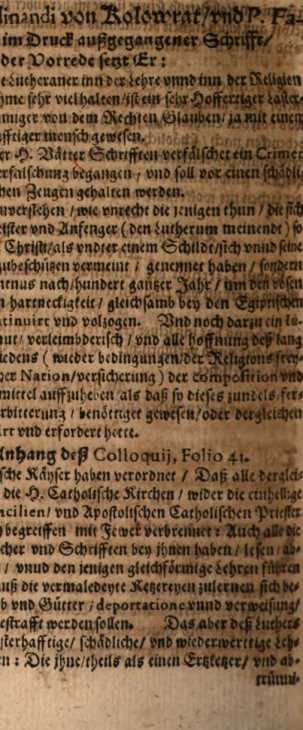 dinandi von Kolowrat/vnd P. Fa-
im Druck außgegangener Schrifft/
der Vorrede setzt Er:
Lutheraner inn der Lehre vnnd inn der Religion
hme sehr viel halten/ist ein sehr Hoffertiger Laster-
miger von dem Rechten Glauben/ja mit einem
fftiger mensch gewesen.
er H. Vätter Schrifften verfälschet ein Crimen
erfälschung begangen/vnd soll vor einen schädli-
hen Zeugen gehalten werden.
uverstehen/wie vnrecht die jenigen thun/die sich
eister vnd Anfenger (den Lutherum meinende) so
Christi/als vnder einem Schildt/sich vnnd seine
zubeschützen vermeint/genennet haben/sondern
tenus nach/hundert gantzer Jahr/inn den bösen
n hartneckigkeit/gleichsamb bey den Egiptischen
tinuirt vnd volzogen. Vnd noch darzu ein
nut verleimbderisch/vnd alle hoffnung deß lang
iedens (wieder bedingungen/der Religions frey-
her Nation/versicherung) der composition vnd
mittel auffzuheben/als daß so dieses zundels fer-
rbitterung/benöttiget gewesen/oder dergleichen
irt vnd erfordert hette.
Anhang deß Colloquij, Folio 41.
sche Käyser haben verordnet/Daß alle derglei-
die H. Catholische Kirchen/wider die einhellige
ncilien/vnd Apostolischen Catholischen Priester
begreiffen mit Fewer verbrennet: Auch alle die
cher vnd Schrifften bey jhnen haben/lesen/ab-
/vnnd den jenigen gleichförmige Lehren führen
auß die vermaledeyte Ketzereyen zulernen sich be-
b vnd Gütter/deportatione vnnd verweisung/
estrafft werden sollen. Das aber deß Luthers
sterhafftige/schädliche/vnd wiederwertige Leh-
n: Die jhne/theils als einen Ertzketzer/vnd ab-
trünni-